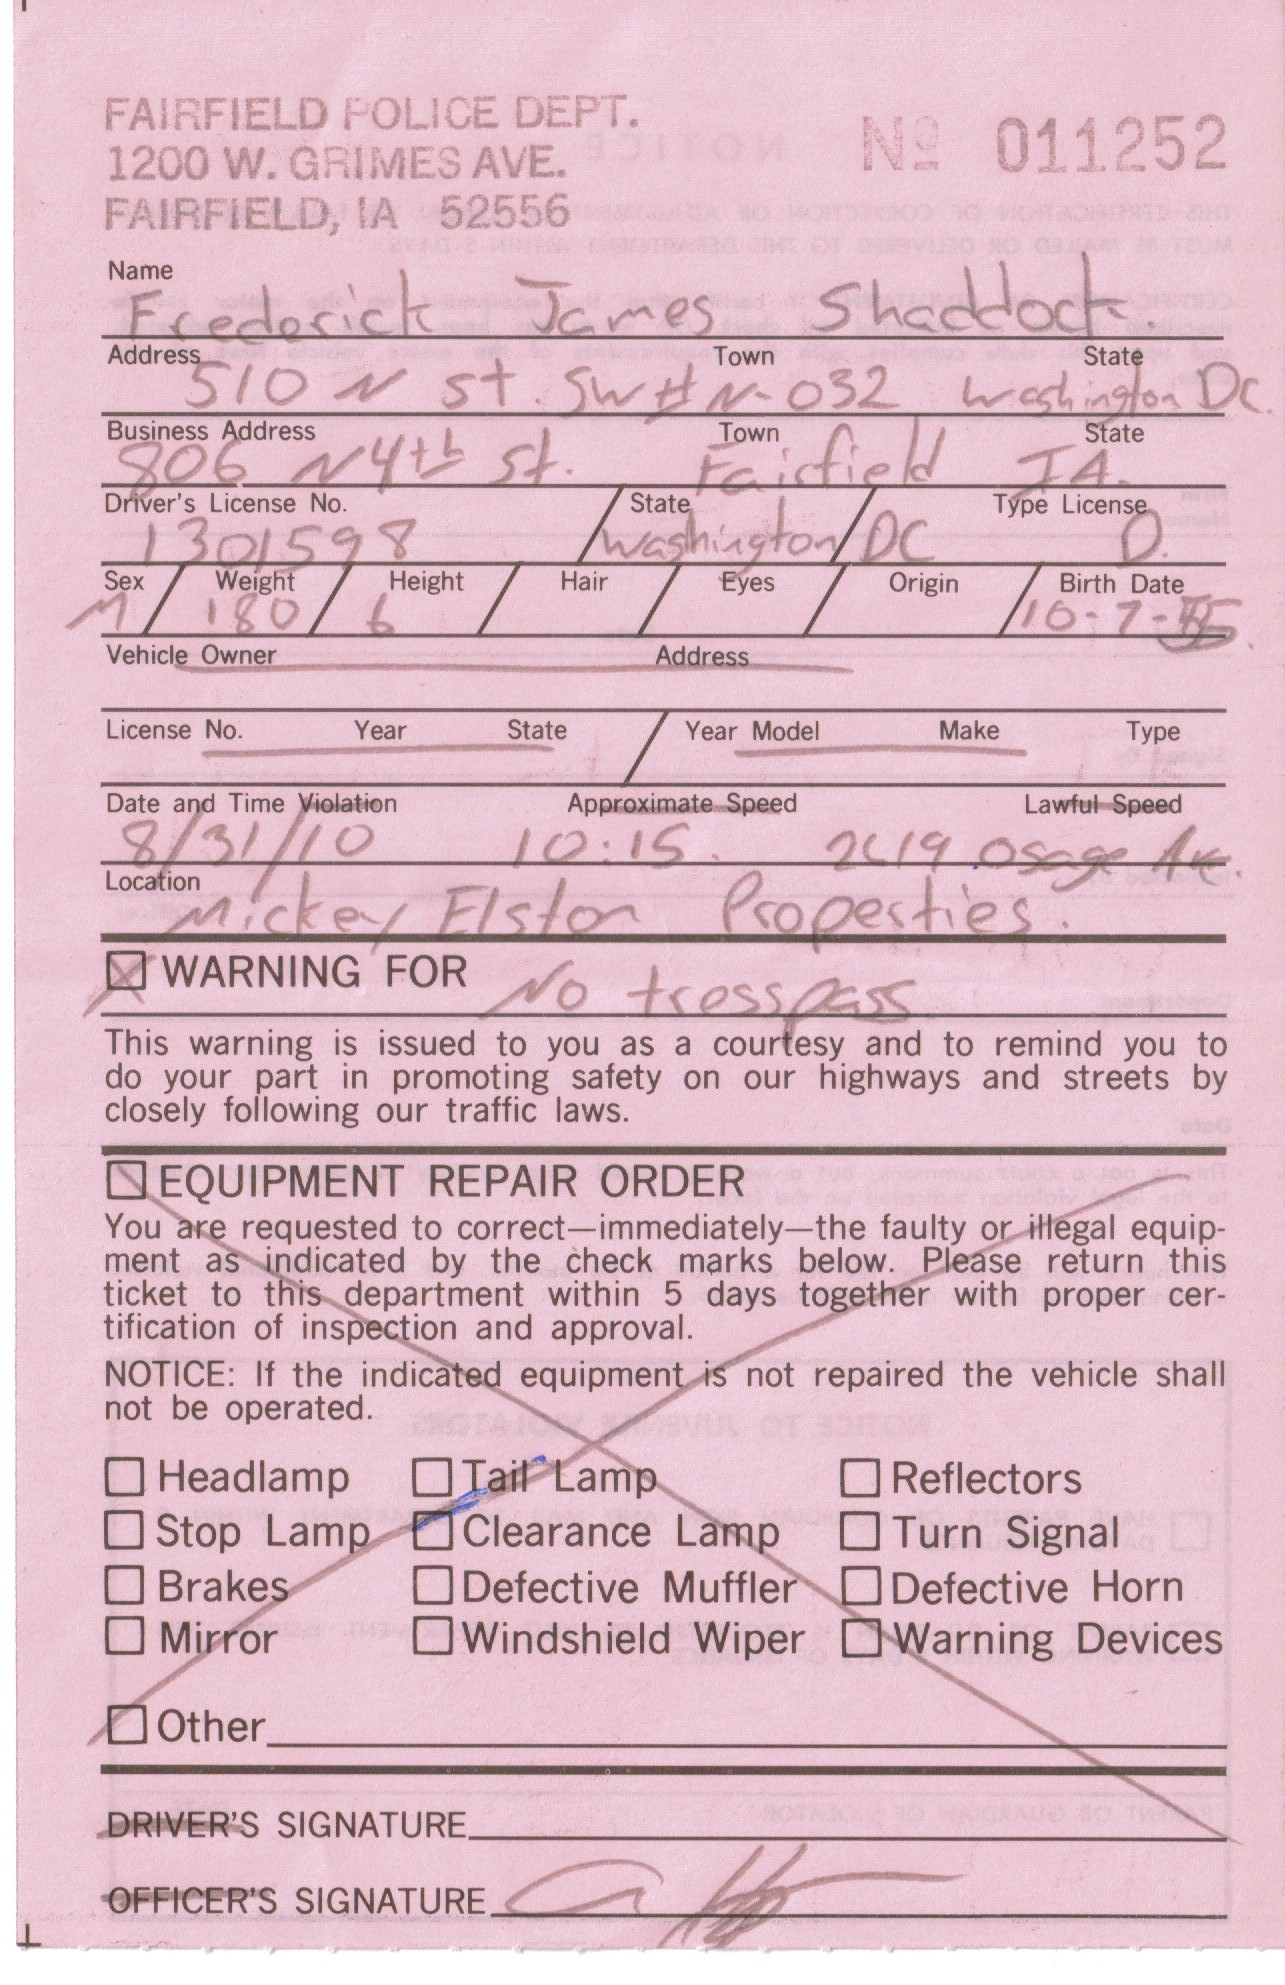 FAIRFIELD POLICE DEPT.
1200 W. GRIMES AVE.
FAIRFIELD, IA 52556
Nº 011252
Name
Frederick James Shaddock.
Address Town State
510 N St. SW # N-032 Washington DC.
Business Address Town State
806 N 4th St. Fairfield IA.
Driver's License No. State Type License
1301598 Washington DC D.
Sex Weight Height Hair Eyes Origin Birth Date
M 180 6 10-7-55.
Vehicle Owner Address
License No. Year State Year Model Make Type
Date and Time Violation Approximate Speed Lawful Speed
8/31/10 10:15. 2619 Osage Ave.
Location
Mickey Elston Properties.
WARNING FOR No tresspass
This warning is issued to you as a courtesy and to remind you to
do your part in promoting safety on our highways and streets by
closely following our traffic laws.
EQUIPMENT REPAIR ORDER
You are requested to correct—immediately—the faulty or illegal equip-
ment as indicated by the check marks below. Please return this
ticket to this department within 5 days together with proper cer-
tification of inspection and approval.
NOTICE: If the indicated equipment is not repaired the vehicle shall
not be operated.
Headlamp Tail Lamp Reflectors
Stop Lamp Clearance Lamp Turn Signal
Brakes Defective Muffler Defective Horn
Mirror Windshield Wiper Warning Devices
Other
DRIVER'S SIGNATURE
OFFICER'S SIGNATURE